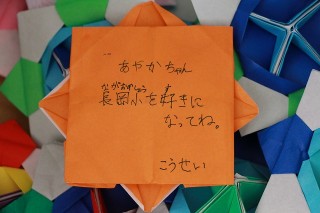 あやかちゃん
ながおかしょう す
長岡小を好きに
なってね。
こうせい